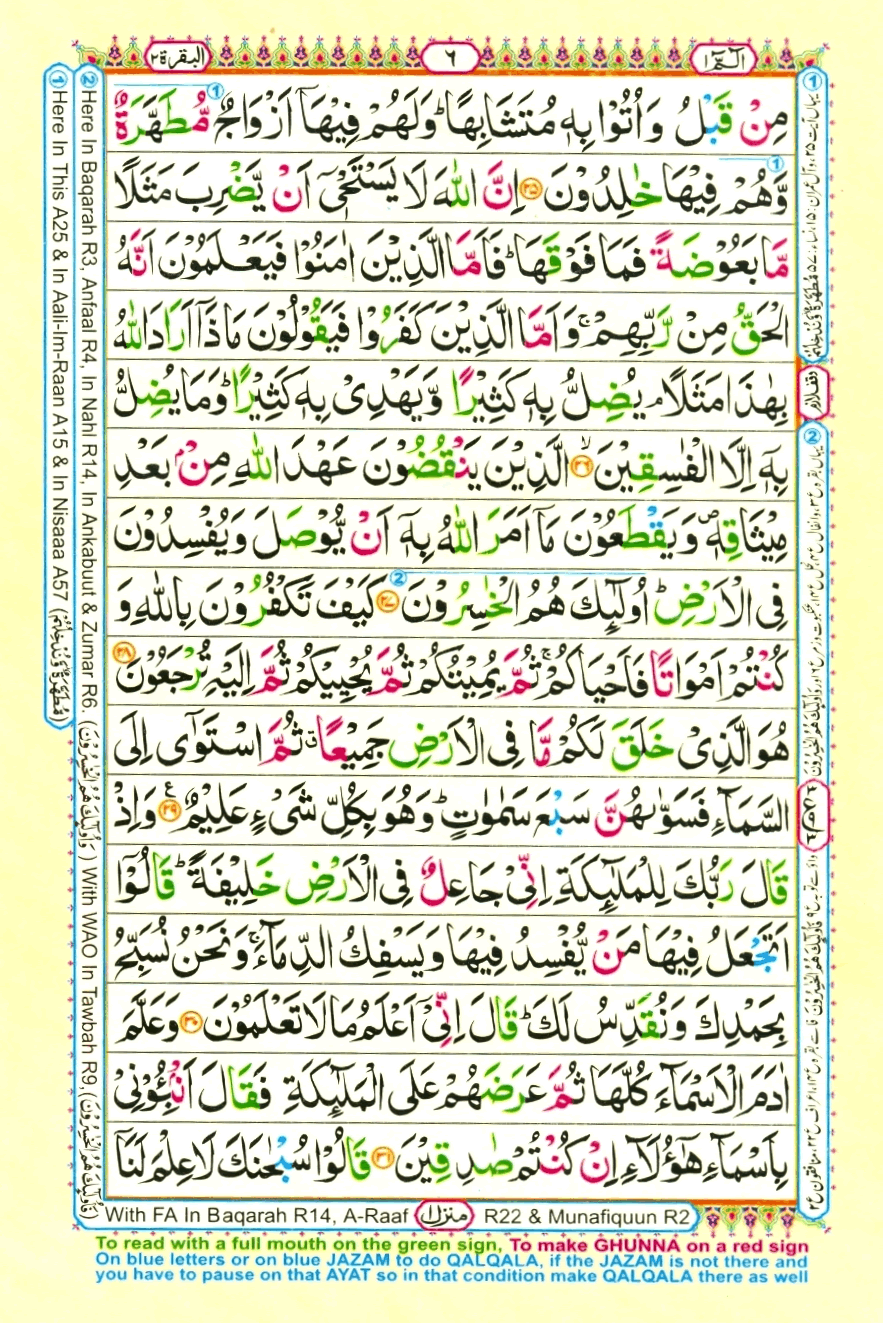 البقرة ٢
٦
الٓمّٓ ١
مِنْ قَبْلُ وَاُتُوْا بِهٖ مُتَشَابِهًا ؕ وَلَهُمْ فِيْهَاۤ اَزْوَاجٌ مُّطَهَّرَةٌ ۙ
وَّهُمْ فِيْهَا خٰلِدُوْنَ ﴿۲۵﴾ اِنَّ اللّٰهَ لَا يَسْتَحْىٖۤ اَنْ يَّضْرِبَ مَثَلًا
مَّا بَعُوْضَةً فَمَا فَوْقَهَا ؕ فَاَمَّا الَّذِيْنَ اٰمَنُوْا فَيَعْلَمُوْنَ اَنَّهُ
الْحَقُّ مِنْ رَّبِّهِمْ ۚ وَاَمَّا الَّذِيْنَ كَفَرُوْا فَيَقُوْلُوْنَ مَاذَاۤ اَرَادَ اللّٰهُ
بِهٰذَا مَثَلًا ۘ يُضِلُّ بِهٖ كَثِيْرًا وَّيَهْدِىْ بِهٖ كَثِيْرًا ؕ وَمَا يُضِلُّ
بِهٖۤ اِلَّا الْفٰسِقِيْنَ ﴿۲۶﴾ ۙ الَّذِيْنَ يَنْقُضُوْنَ عَهْدَ اللّٰهِ مِنْۢ بَعْدِ
مِيْثَاقِهٖ ۪ وَيَقْطَعُوْنَ مَاۤ اَمَرَ اللّٰهُ بِهٖۤ اَنْ يُّوْصَلَ وَيُفْسِدُوْنَ
فِى الْاَرْضِ ؕ اُولٰٓئِكَ هُمُ الْخٰسِرُوْنَ ﴿۲۷﴾ كَيْفَ تَكْفُرُوْنَ بِاللّٰهِ وَ
كُنْتُمْ اَمْوَاتًا فَاَحْيَاكُمْ ۚ ثُمَّ يُمِيْتُكُمْ ثُمَّ يُحْيِيْكُمْ ثُمَّ اِلَيْهِ تُرْجَعُوْنَ ﴿۲۸﴾
هُوَ الَّذِىْ خَلَقَ لَكُمْ مَّا فِى الْاَرْضِ جَمِيْعًا ۗ ثُمَّ اسْتَوٰٓى اِلَى
السَّمَآءِ فَسَوّٰىهُنَّ سَبْعَ سَمٰوٰتٍ ؕ وَهُوَ بِكُلِّ شَىْءٍ عَلِيْمٌ ﴿۲۹﴾ وَاِذْ
قَالَ رَبُّكَ لِلْمَلٰٓئِكَةِ اِنِّىْ جَاعِلٌ فِى الْاَرْضِ خَلِيْفَةً ؕ قَالُوْۤا
اَتَجْعَلُ فِيْهَا مَنْ يُّفْسِدُ فِيْهَا وَيَسْفِكُ الدِّمَآءَ ۚ وَنَحْنُ نُسَبِّحُ
بِحَمْدِكَ وَنُقَدِّسُ لَكَ ؕ قَالَ اِنِّىْۤ اَعْلَمُ مَا لَا تَعْلَمُوْنَ ﴿۳۰﴾ وَعَلَّمَ
اٰدَمَ الْاَسْمَآءَ كُلَّهَا ثُمَّ عَرَضَهُمْ عَلَى الْمَلٰٓئِكَةِ فَقَالَ اَنْۢبِئُوْنِىْ
بِاَسْمَآءِ هٰٓؤُلَآءِ اِنْ كُنْتُمْ صٰدِقِيْنَ ﴿۳۱﴾ قَالُوْا سُبْحٰنَكَ لَا عِلْمَ لَنَاۤ
① Here In This A25 & In Aali-Im-Raan A15 & In Nisaaa A57
② Here In Baqarah R3, Anfaal R4, In Nahl R14, In Ankabuut & Zumar R6. (وَاُولٰٓئِكَ هُمُ الْخٰسِرُوْنَ) With WAO In Tawbah R9, (فَاُولٰٓئِكَ هُمُ الْخٰسِرُوْنَ)
With FA In Baqarah R14, A-Raaf منزل ١ R22 & Munafiquun R2
To read with a full mouth on the green sign, To make GHUNNA on a red sign
On blue letters or on blue JAZAM to do QALQALA, if the JAZAM is not there and
you have to pause on that AYAT so in that condition make QALQALA there as well